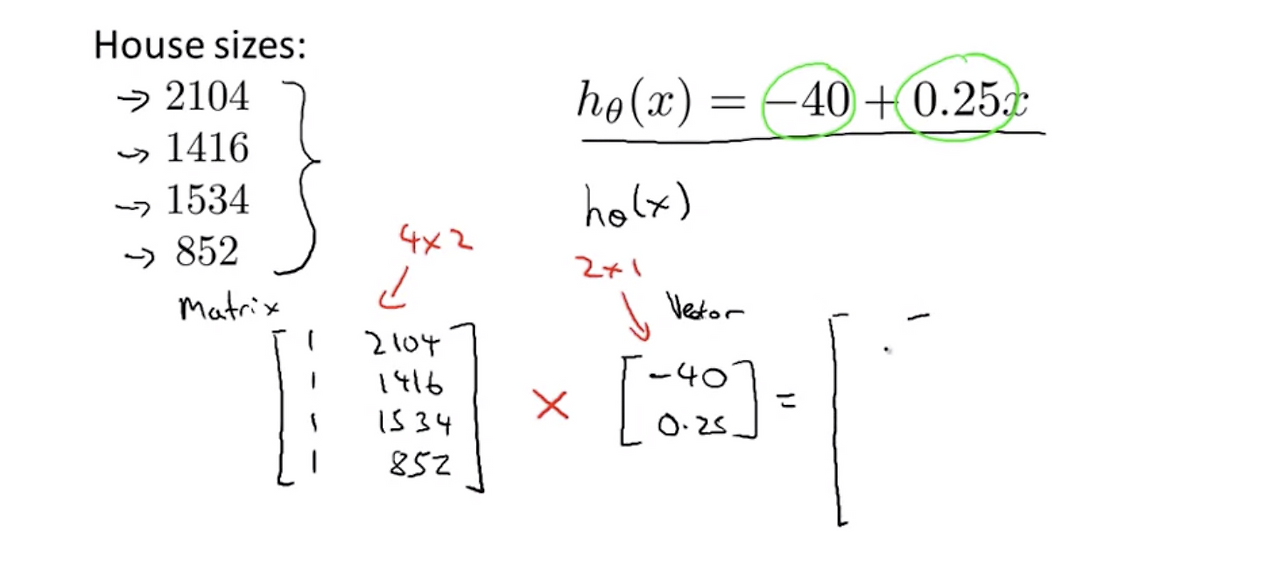 House sizes:
→ 2104
→ 1416
→ 1534
→ 852
hθ(x) = −40 + 0.25x
hθ(x)
4×2
2×1
Matrix
Vector
[1 2104
1 1416
1 1534
1 852] × [-40
0.25] = [